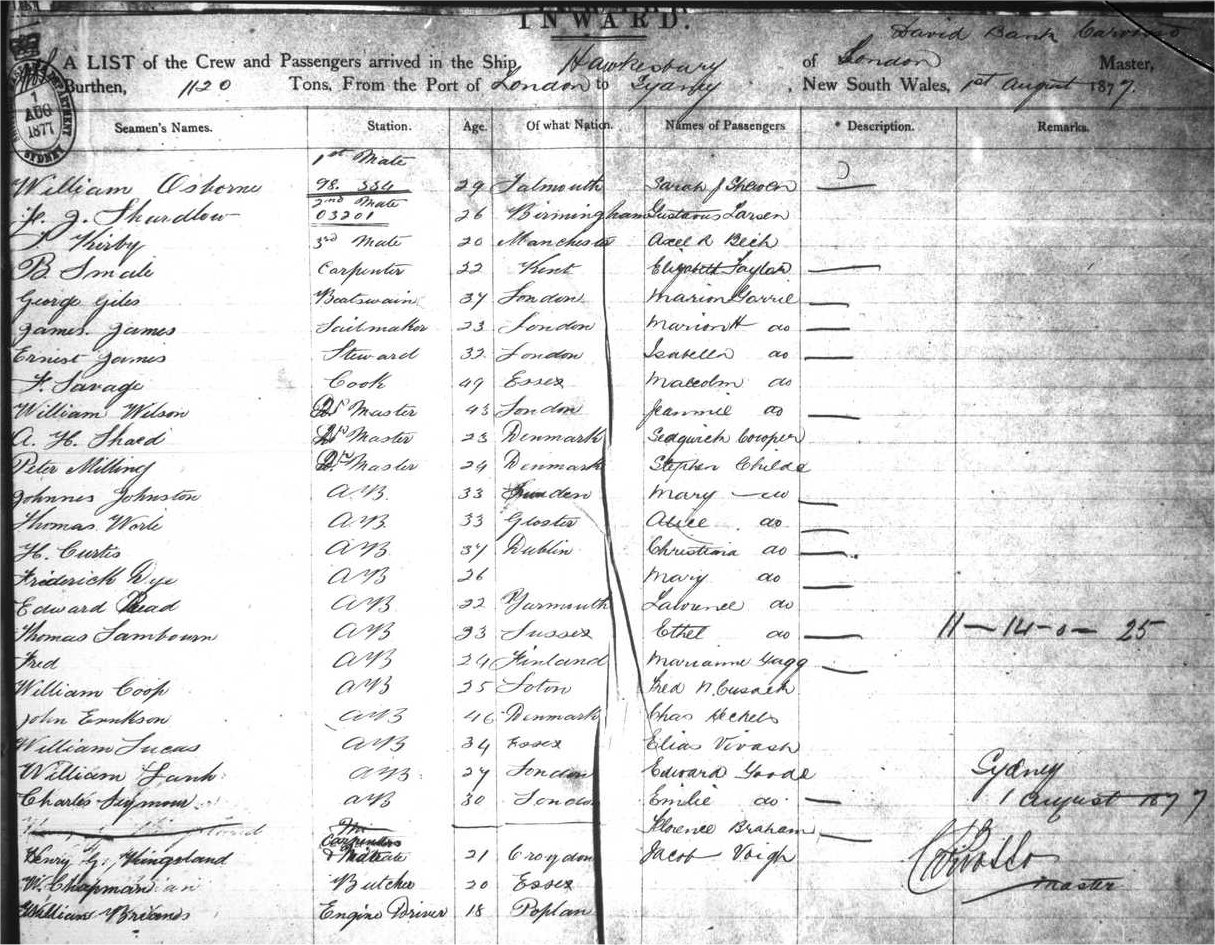 INWARD.
David Bank
A LIST of the Crew and Passengers arrived in the Ship Hawkesbury of London Master,
Burthen, 1120 Tons, From the Port of London to Sydney, New South Wales, 1st August 1877.
1 AUG 1877 SYDNEY
Seamen's Names. Station. Age. Of what Nation. Names of Passengers * Description. Remarks.
1st Mate
William Osborne 98. 554 29 Falmouth Sarah J
2nd Mate
J. Shardlow 03201 26 Birmingham Gustavus Larsen
Kirby 3rd Mate 20 Manchester Axel R Beck
B. Smale Carpenter 22 Kent Elizabeth Taylor
George Giles Boatswain 37 London Marion Garrie
James. James Sailmaker 23 London Marion H do
Ernest James Steward 32 London Isabella do
F. Savage Cook 49 Essex Malcolm do
William Wilson Master 43 London Jeannie do
A. H. Master 23 Denmark Sedgwick Cowper
Peter Milling Master 24 Denmark Stephen Childe
Johnnes Johnston AB 33 Mary do
Thomas AB 33 Gloster Alice do
H. Curtis AB 37 Dublin Christiana do
Friderick Dye AB 26 Mary do
Edward Read AB 22 Yarmouth Laurence do
Thomas Sambourn AB 23 Sussex Ethel do 11-14-0- 25
Fred AB 24 Finland Marianne
William Coop AB 25 Soton Fred N Cusack
John AB 46 Denmark Chas Heckels
William Lucas AB 34 Essex Elias Vivash
William AB 27 London Edward Goode Sydney
Charles Seymour AB 30 London Emilie do 1 August 1877
Florence Braham
Carpenters
Henry G. Kingsland 21 Croydon Jacob Voigh
W. Chapman Butcher 20 Essex master
William Engine Driver 18 Poplar